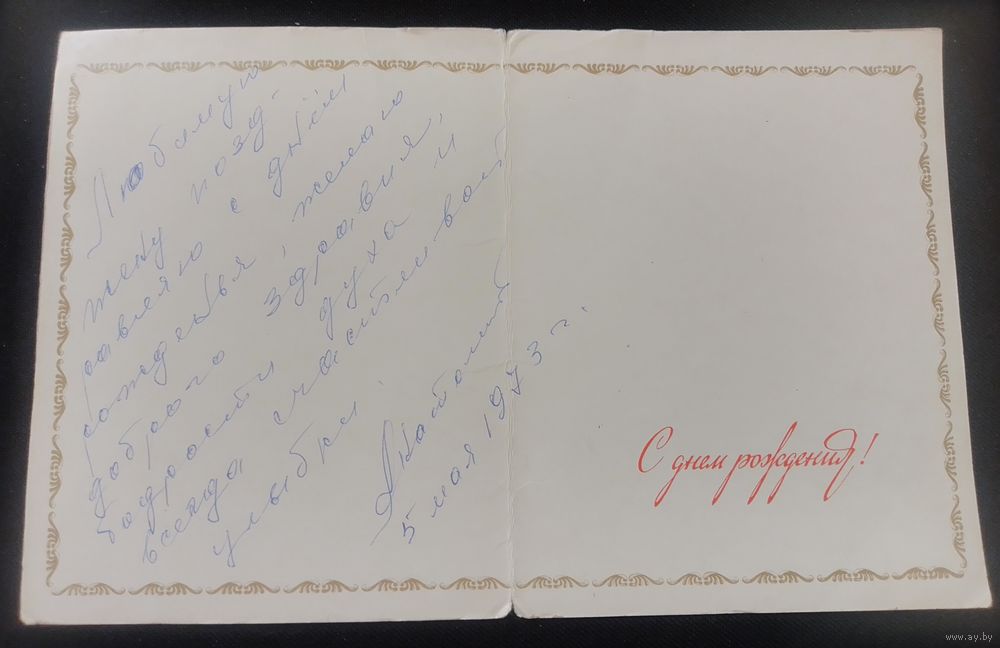 Любимую
жену позд-
равляю с днём
рожденья, желаю
доброго здравия,
бодрости духа и
всегда счастливой
улыбки!
Анатолий
5 мая 1973 г.
С днем рождения!
www.ay.by